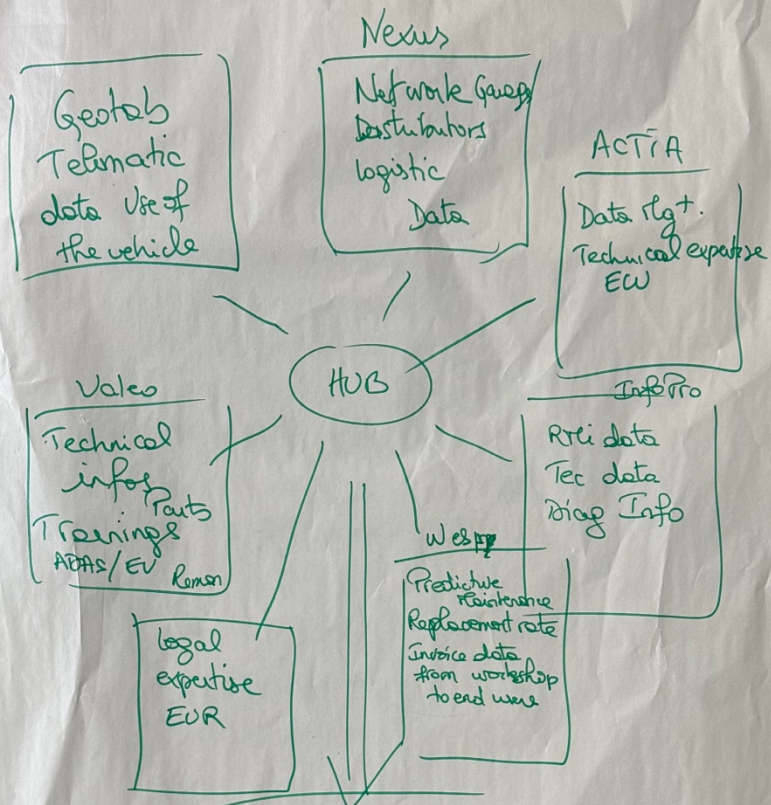 Nexus
Geotab
Telematic
data Use of
the vehicle
Network
Distributors
logistic
Data
ACTIA
Data Mgt.
Technical expertise
HUB
Valeo
Technical
infos
Parts
Trainings
ADAS/EV Reman
InfoPro
RMi data
Tec data
Diag Info
Predictive
Maintenance
Replacement rate
Invoice data
from workshop
to end
Legal
expertise
EUR